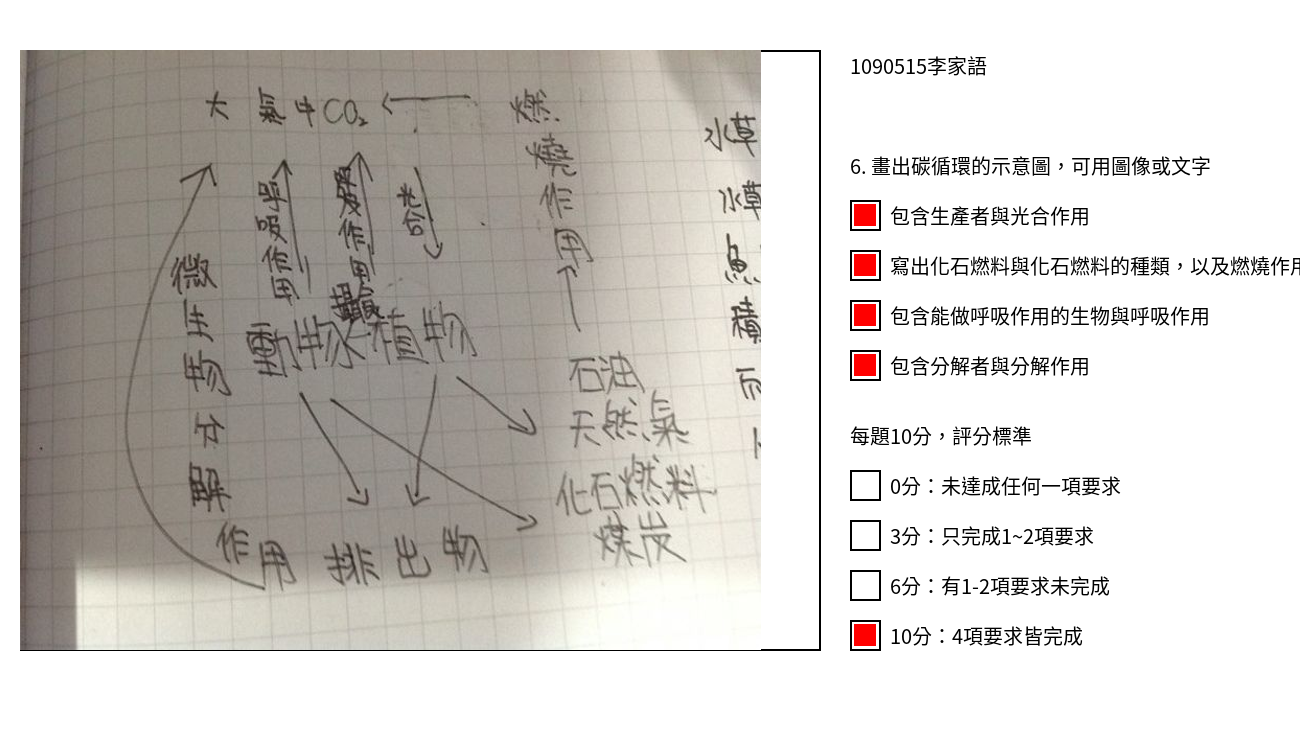 大氣中CO₂
燃燒作用
呼吸作用
呼吸作用
光合
微生物分解作用
動物
植物
石油
天然氣
化石燃料
煤炭
排出物
水草
水草
魚
積
1090515李家語
6. 畫出碳循環的示意圖，可用圖像或文字
包含生產者與光合作用
寫出化石燃料與化石燃料的種類，以及燃燒作用
包含能做呼吸作用的生物與呼吸作用
包含分解者與分解作用
每題10分，評分標準
0分：未達成任何一項要求
3分：只完成1~2項要求
6分：有1-2項要求未完成
10分：4項要求皆完成